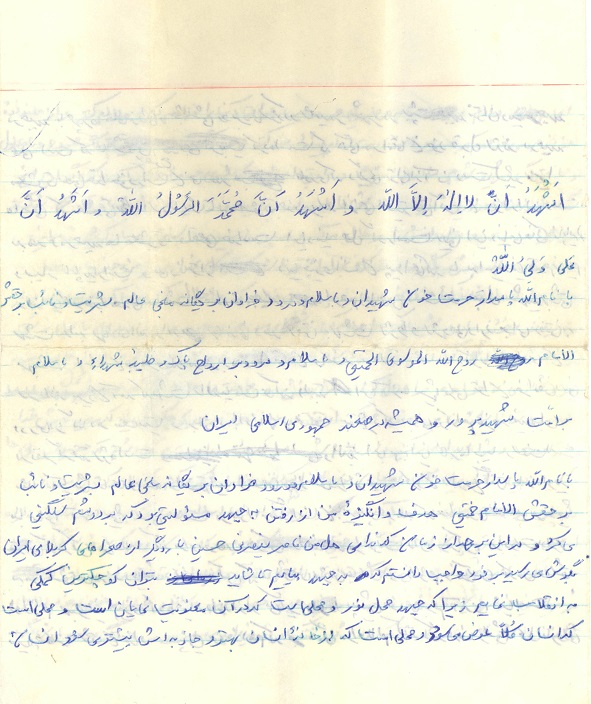 اَشْهَدُ اَنَّ لا اِلهَ اِلاَّ اللّه و اَشْهَدُ اَنَّ مُحَمَّدَ الرَسُولُ اللهِ و اَشْهَدُ اَنَّ
علی ولیُ اللّه
با نام الله پاسدار حرمت خون شهیدان و با سلام و درود فراوان بر یگانه منجی عالم بشریت و نائب برحقش
الامام روح الله الموسوی الخمینی و با سلام و درود بر ارواح پاک و طیبه شهداء و با سلام
بر امت شهیدپرور و همیشه در صحنه جمهوری اسلامی ایران
با نام الله پاسدار حرمت خون شهیدان و با سلام و درود فراوان بر یگانه منجی عالم بشریت و نائب
بر حقش الامام خمینی هدف و انگیزهٔ من از رفتن به جبهه مسئولیتی بود که بر دوشم سنگینی
می‌کرد و در این برهه از زمان که ندای هل من ناصر ینصرنی حسین بار دیگر از صحرای کربلای ایران
بگوش می‌رسید بر خود واجب دانستم که به جبهه بیایم تا شاید بتوان کوچکترین کمکی
به انقلاب نمایم زیرا که جبهه محل نور و محلی است که در آن معنویت نمایان است و محلی است
که انسان کلاً عوض می‌شود و محلی است که از خانهٔ انسان بهتر و جاذبه‌اش بیشتر